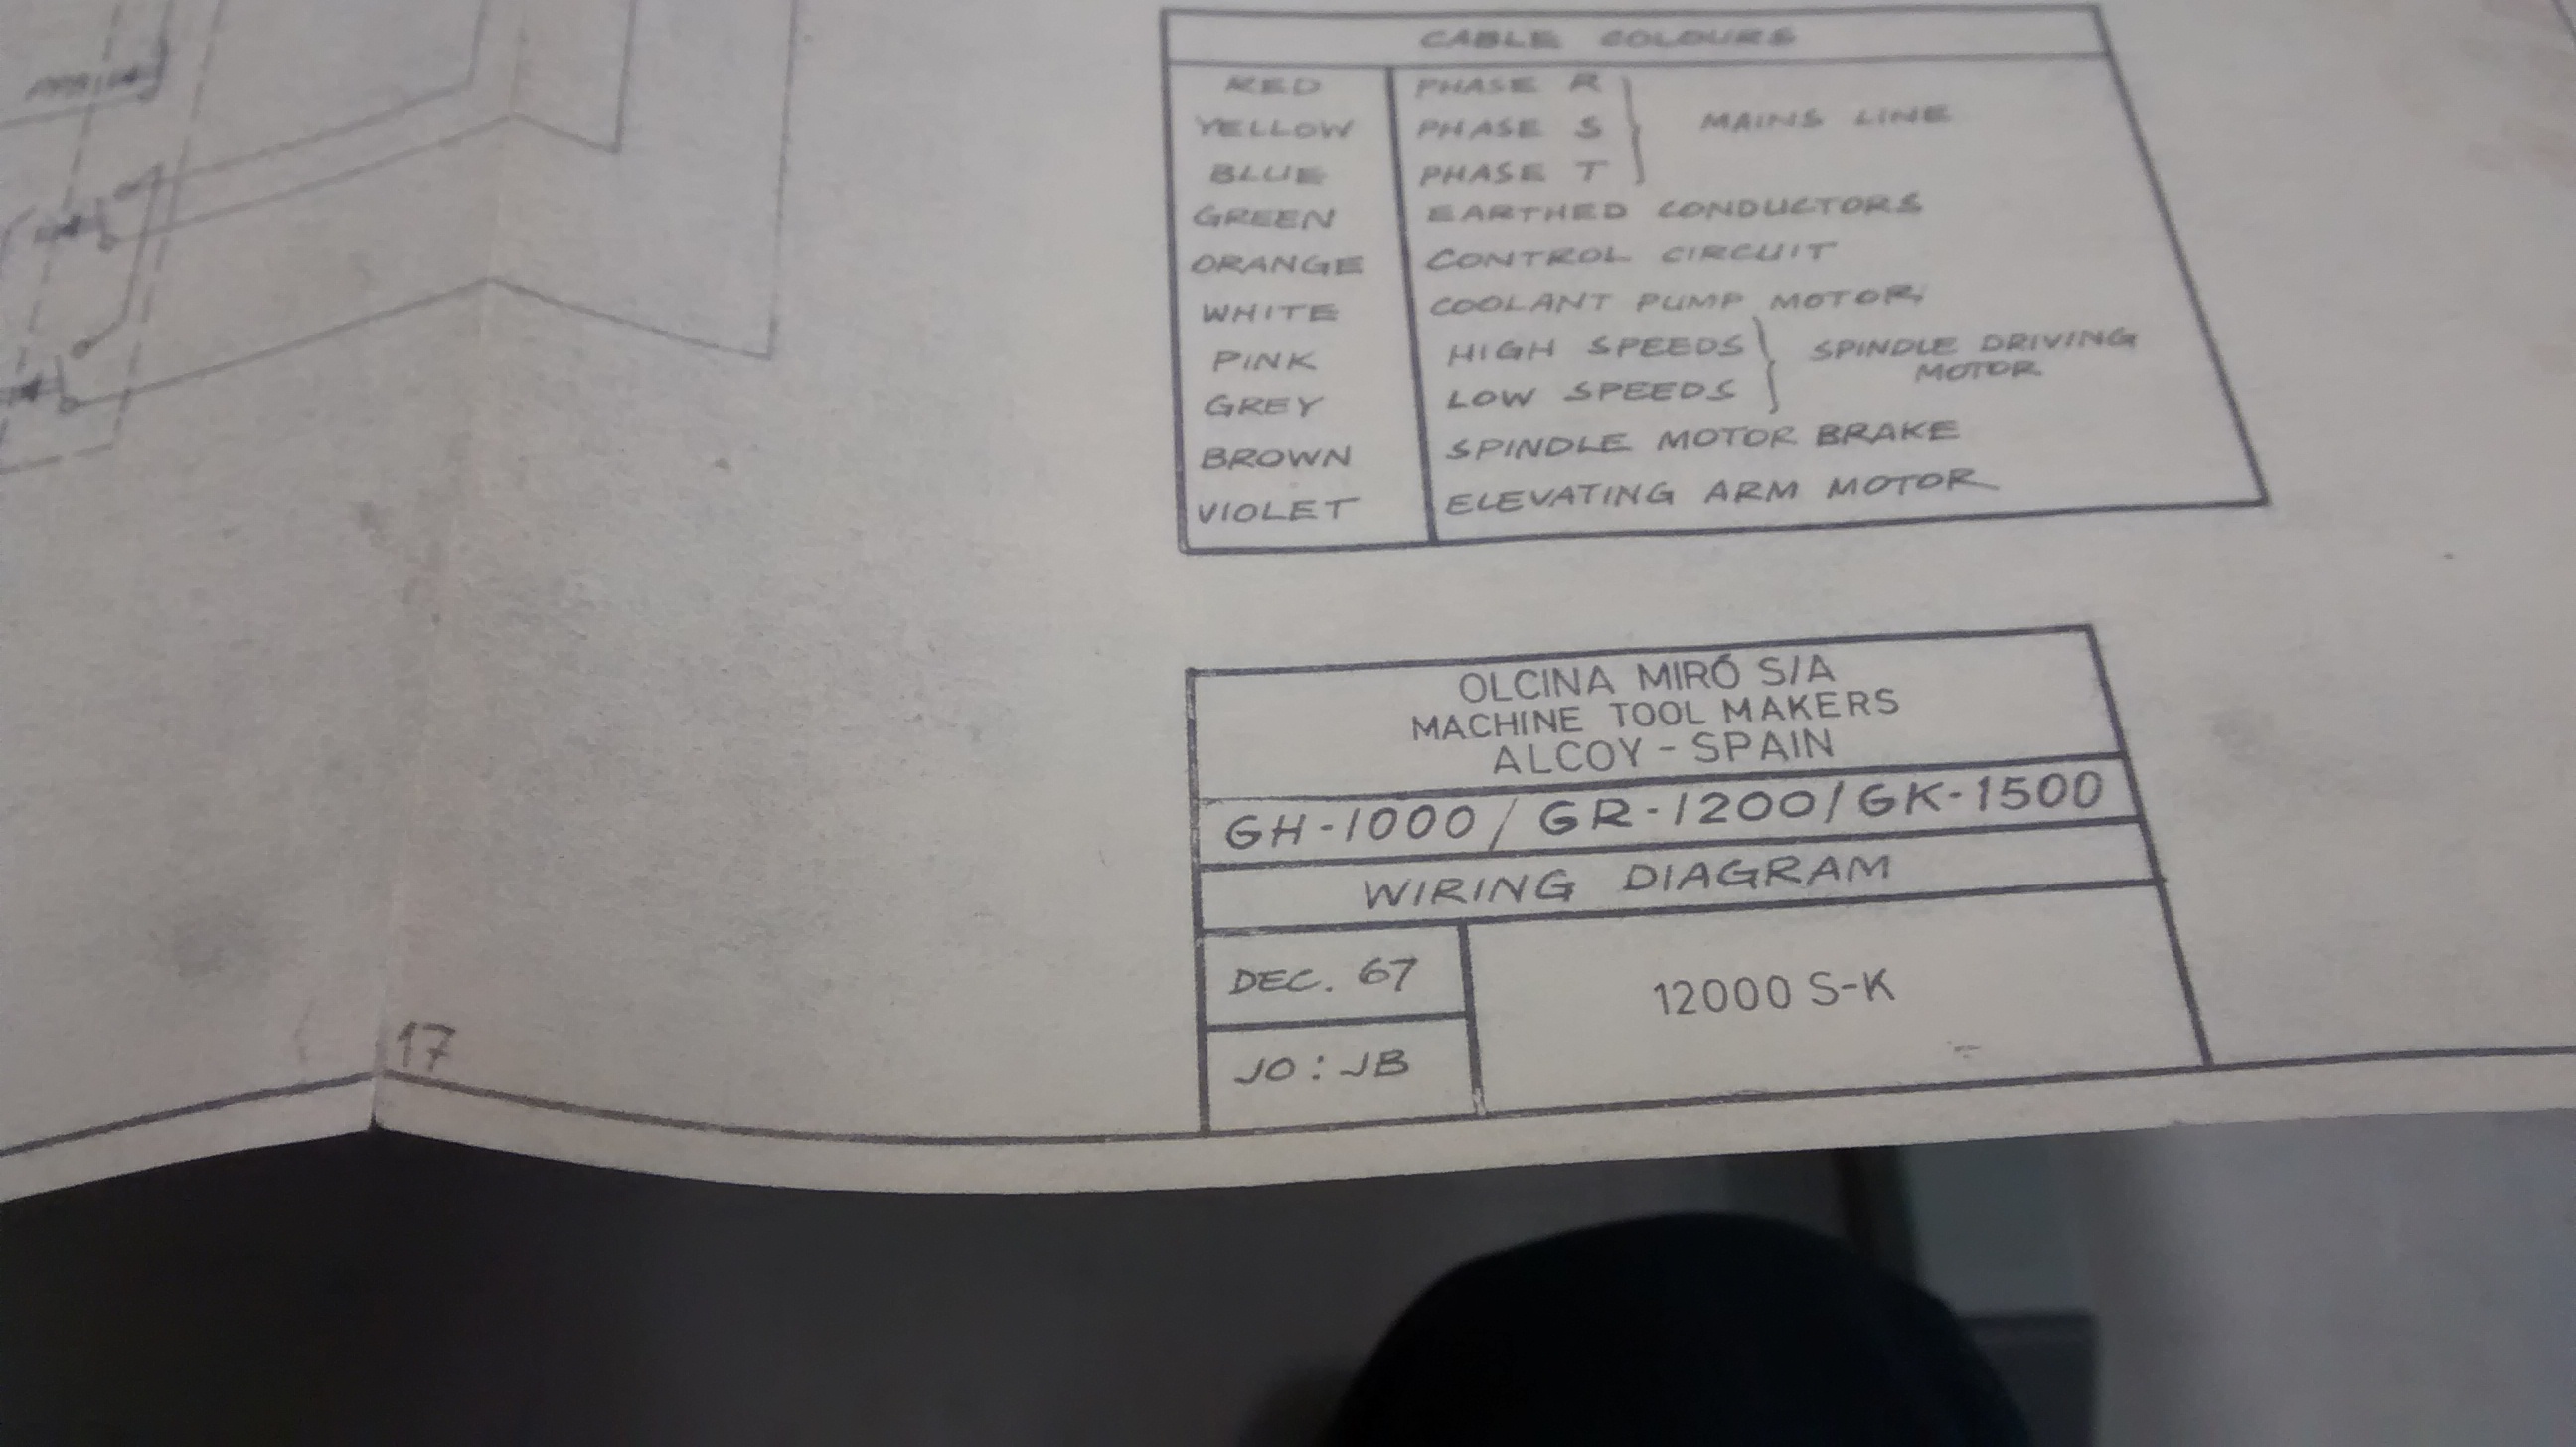 CABLE COLOURS
RED PHASE R
YELLOW PHASE S MAINS LINE
BLUE PHASE T
GREEN EARTHED CONDUCTORS
ORANGE CONTROL CIRCUIT
WHITE COOLANT PUMP MOTOR
PINK HIGH SPEEDS SPINDLE DRIVING
MOTOR
GREY LOW SPEEDS
BROWN SPINDLE MOTOR BRAKE
VIOLET ELEVATING ARM MOTOR
OLCINA MIRÓ S/A
MACHINE TOOL MAKERS
ALCOY - SPAIN
GH-1000 / GR-1200 / GK-1500
WIRING DIAGRAM
DEC. 67
12000 S-K
JO : JB
17